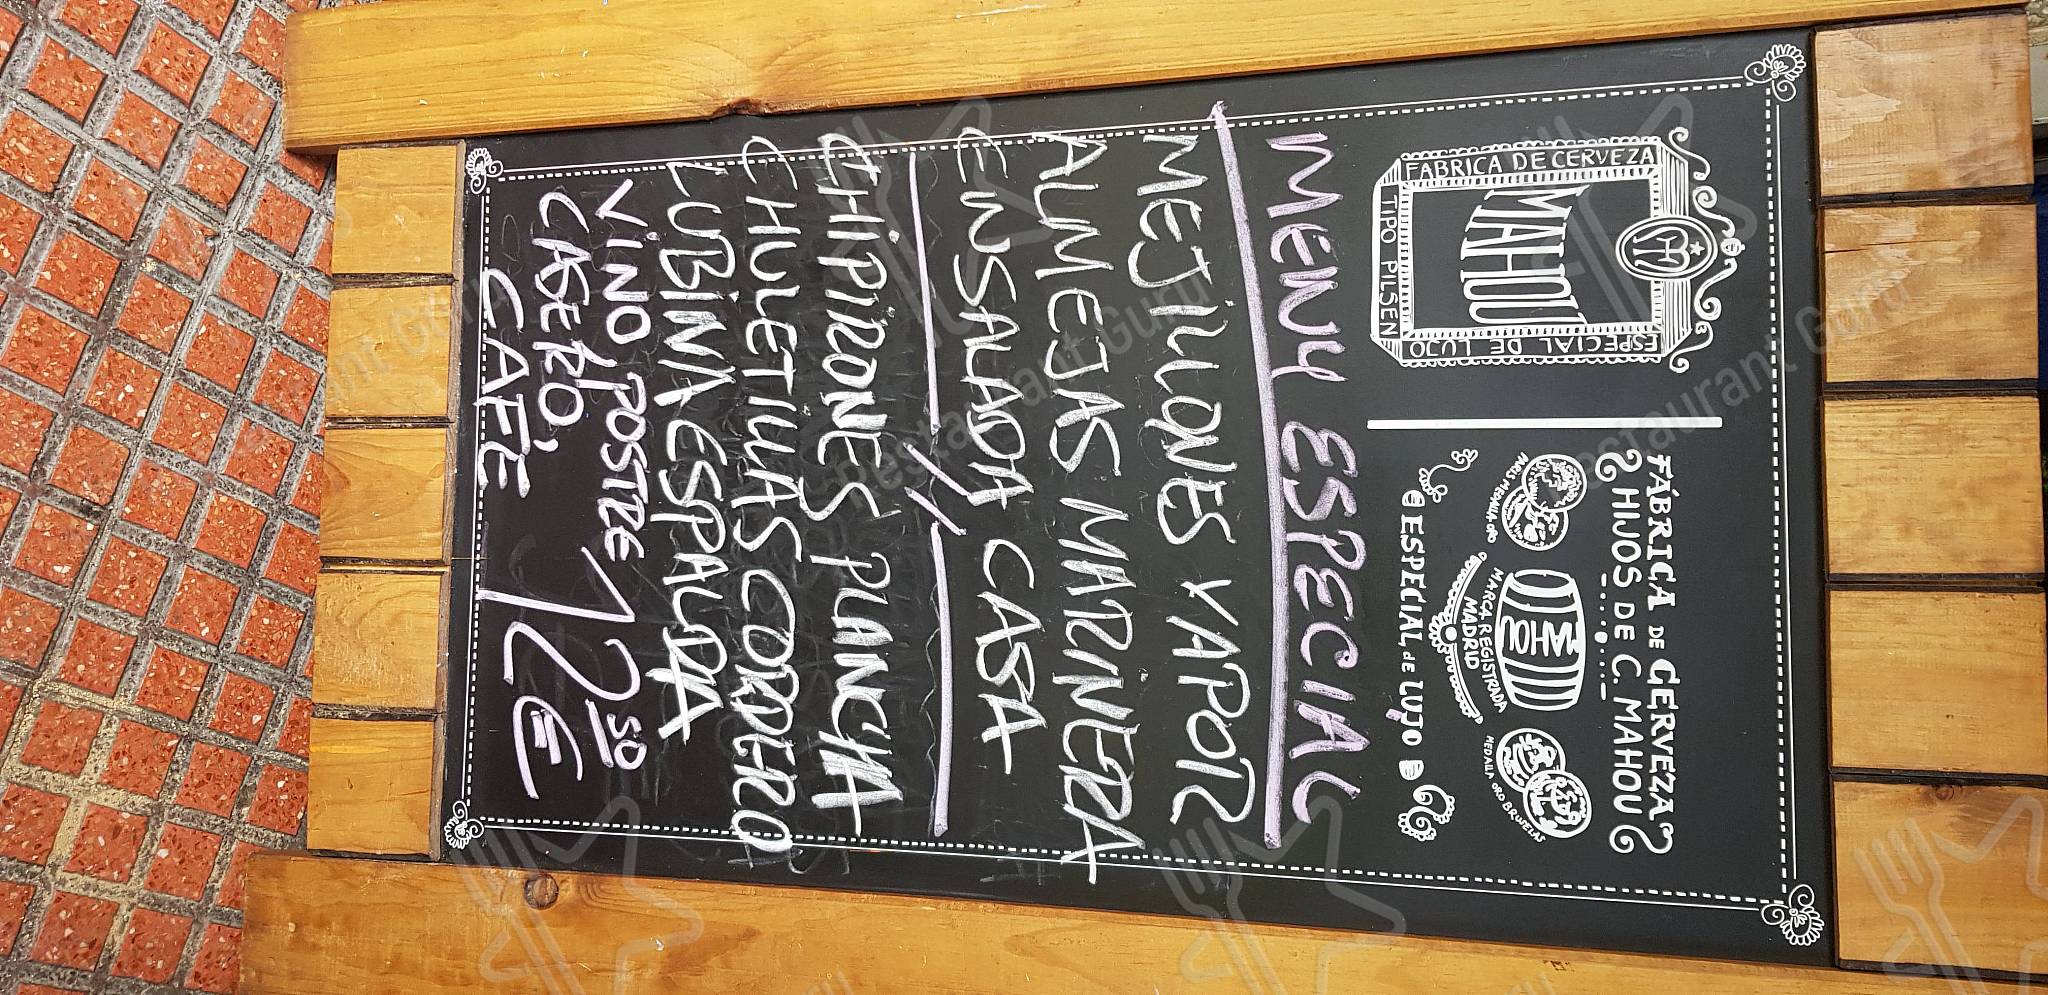 FABRICA DE CERVEZA
MAHOU
TIPO PILSEN
ESPECIAL DE LUJO
FÁBRICA DE CERVEZA
HIJOS DE C. MAHOU
PARIS MEDALLA-ORO
MAHOU
MARCA REGISTRADA
MADRID
MEDALLA ORO BRUSELAS
ESPECIAL DE LUJO
MENU ESPECIAL
MEJILLONES VAPOR
ALMEJAS MARINERA
ENSALADA CASA
CHIPIRONES PLANCHA
CHULETILLAS CORDERO
LUBINA ESPALDA
VINO, POSTRE
CASERO,
CAFE
12,50
€
Restaurant Guru